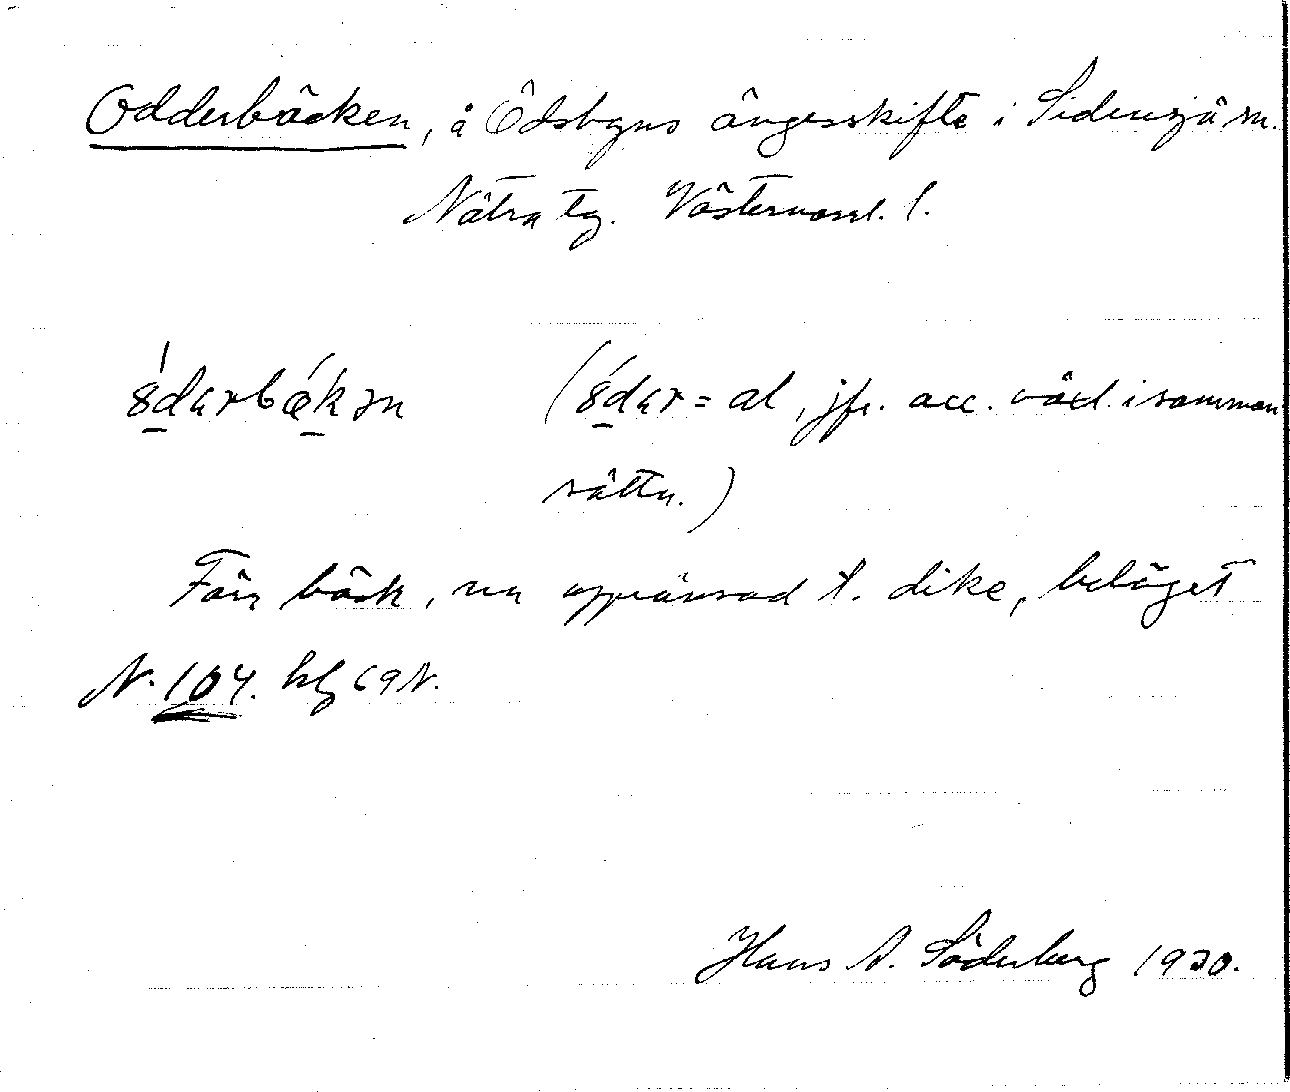 Odderbäcken, å Ödsbyns ängesskifte i Sidensjö sn.
Nätra tg. Västernorrl. l.
(= al, jfr. acc. växl. i samman
sättn.)
Förr bäck, nu upprensad t. dike, beläget
N. 104. 69 N.
Hans A. Söderberg 1930.